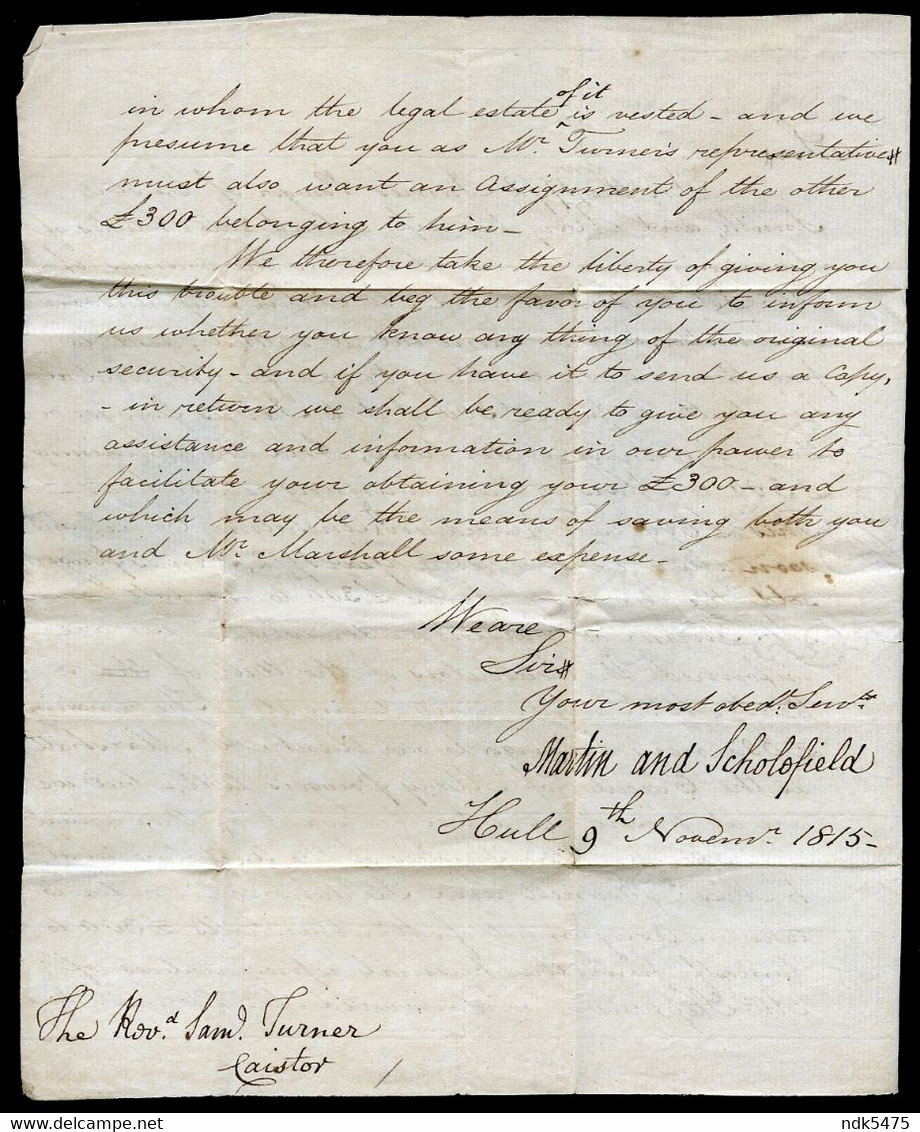 in whom the legal estate ^of it is vested - and we
presume that you as Mr. Turner's representative
must also want an Assignment of the other
£300 belonging to him -
We therefore take the liberty of giving you
this trouble and beg the favor of you to inform
us whether you know any thing of the original
security - and if you have it to send us a Copy,
- in return we shall be ready to give you any
assistance and information in our power to
facilitate your obtaining your £300 - and
which may be the means of saving both you
and Mr. Marshall some expense -
We are
Sir
Your most obedt. Servts.
Martin and Scholefield
Hull 9th Novemr. 1815 -
The Revd. Saml. Turner
Caistor
ndk5475